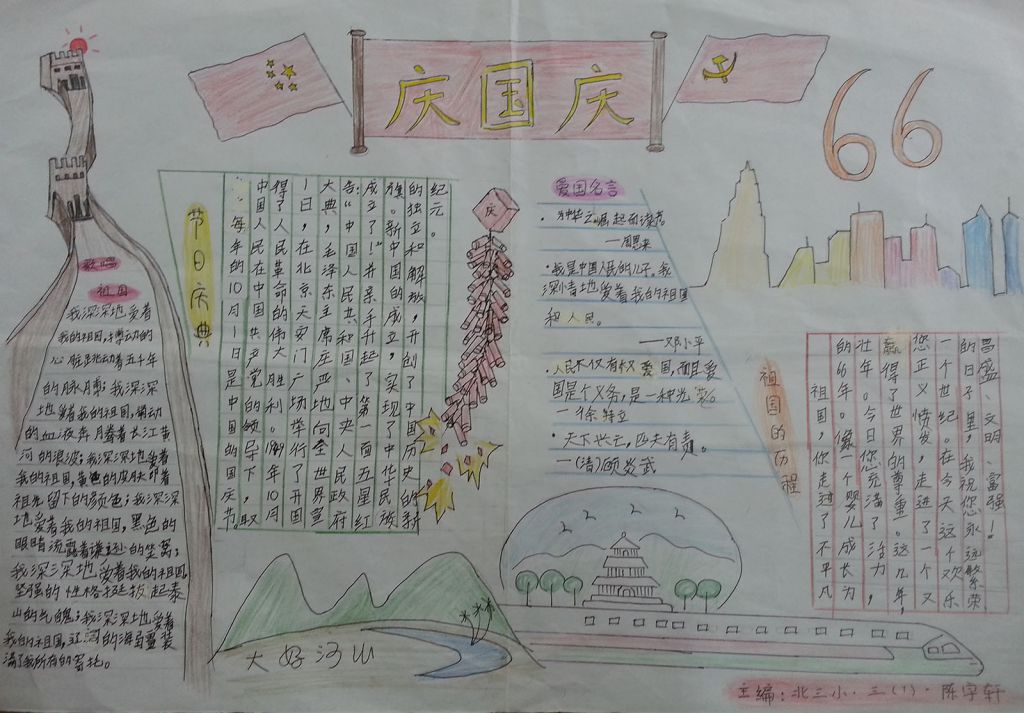 庆国庆
66
歌唱
祖国
我深深地爱着
我的祖国,搏动的
心脏跳动着五千年
的脉搏;我深深
地爱着我的祖国,涌动
的血液奔腾着长江黄
河的浪波;我深深地爱着
我的祖国,黄色的皮肤印着
祖先留下的颜色;我深深
地爱着我的祖国,黑色的
眼睛流露着谦逊的
我深深地爱着我的祖国,
坚强的性格挺拔起泰
山的气魄;我深深地爱着
我的祖国,辽阔的海疆壹装
满了我所有的寄托。
节日庆典
每年的10月1日是中国的国庆节。
中国人民在中国共产党的领导下,取
得了人民革命的伟大胜利。1949年10月
1日,在北京天安门广场举行了开国
大典,毛泽东主席庄严地向全世界宣
告:“中国人民共和国、中央人民政府
成立了!”并亲手升起了第一面五星红
旗。新中国的成立,实现了中华民族
的独立和解放,开创了中国历史的新
纪元。
庆
爱国名言
·为中华之崛起而读书
—周恩来
·我是中国人民的儿子。我
深情地爱着我的祖国
和人民。
—邓小平
·人民不仅有权爱国,而且爱
国是个义务,是一种光荣。
—徐特立
·天下兴亡,匹夫有责。
—(清)顾炎武
祖国的历程
祖国,你走过了不平凡
的66年。像一个婴儿成长为
壮年。今日您充满了活力,
赢得了世界的尊重。这几年,
您正义愤发,走进了一个又
一个世纪。在今天这个欢乐
的日子里,我祝您永远繁荣
昌盛、文明、富强!
大好河山
主编:北三小·三(1)·陈宇轩